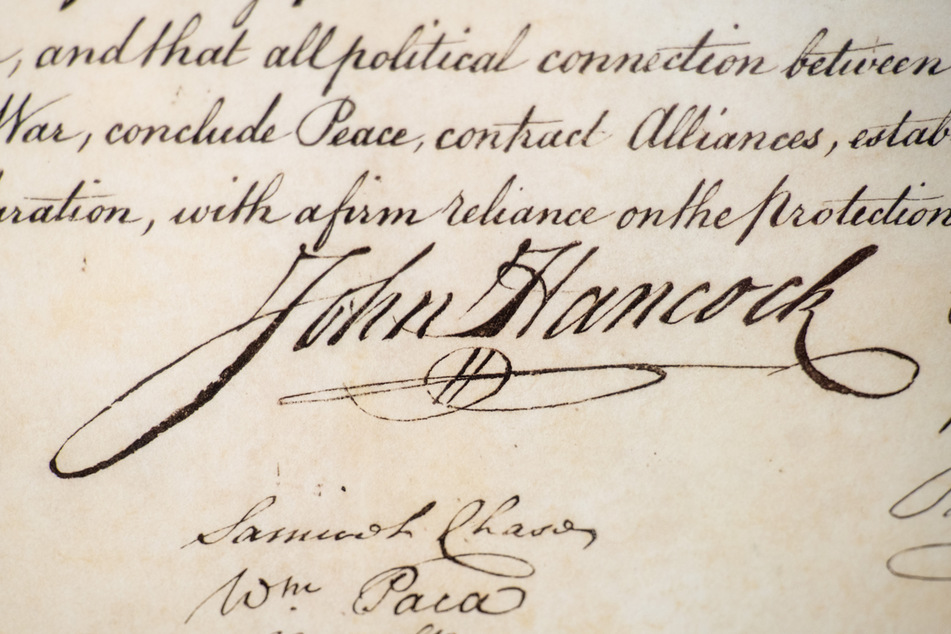 , and that all political connection between
War, conclude Peace, contract Alliances, estab
ration, with a firm reliance on the protection
John Hancock
Samuel Chase
Wm. Paca